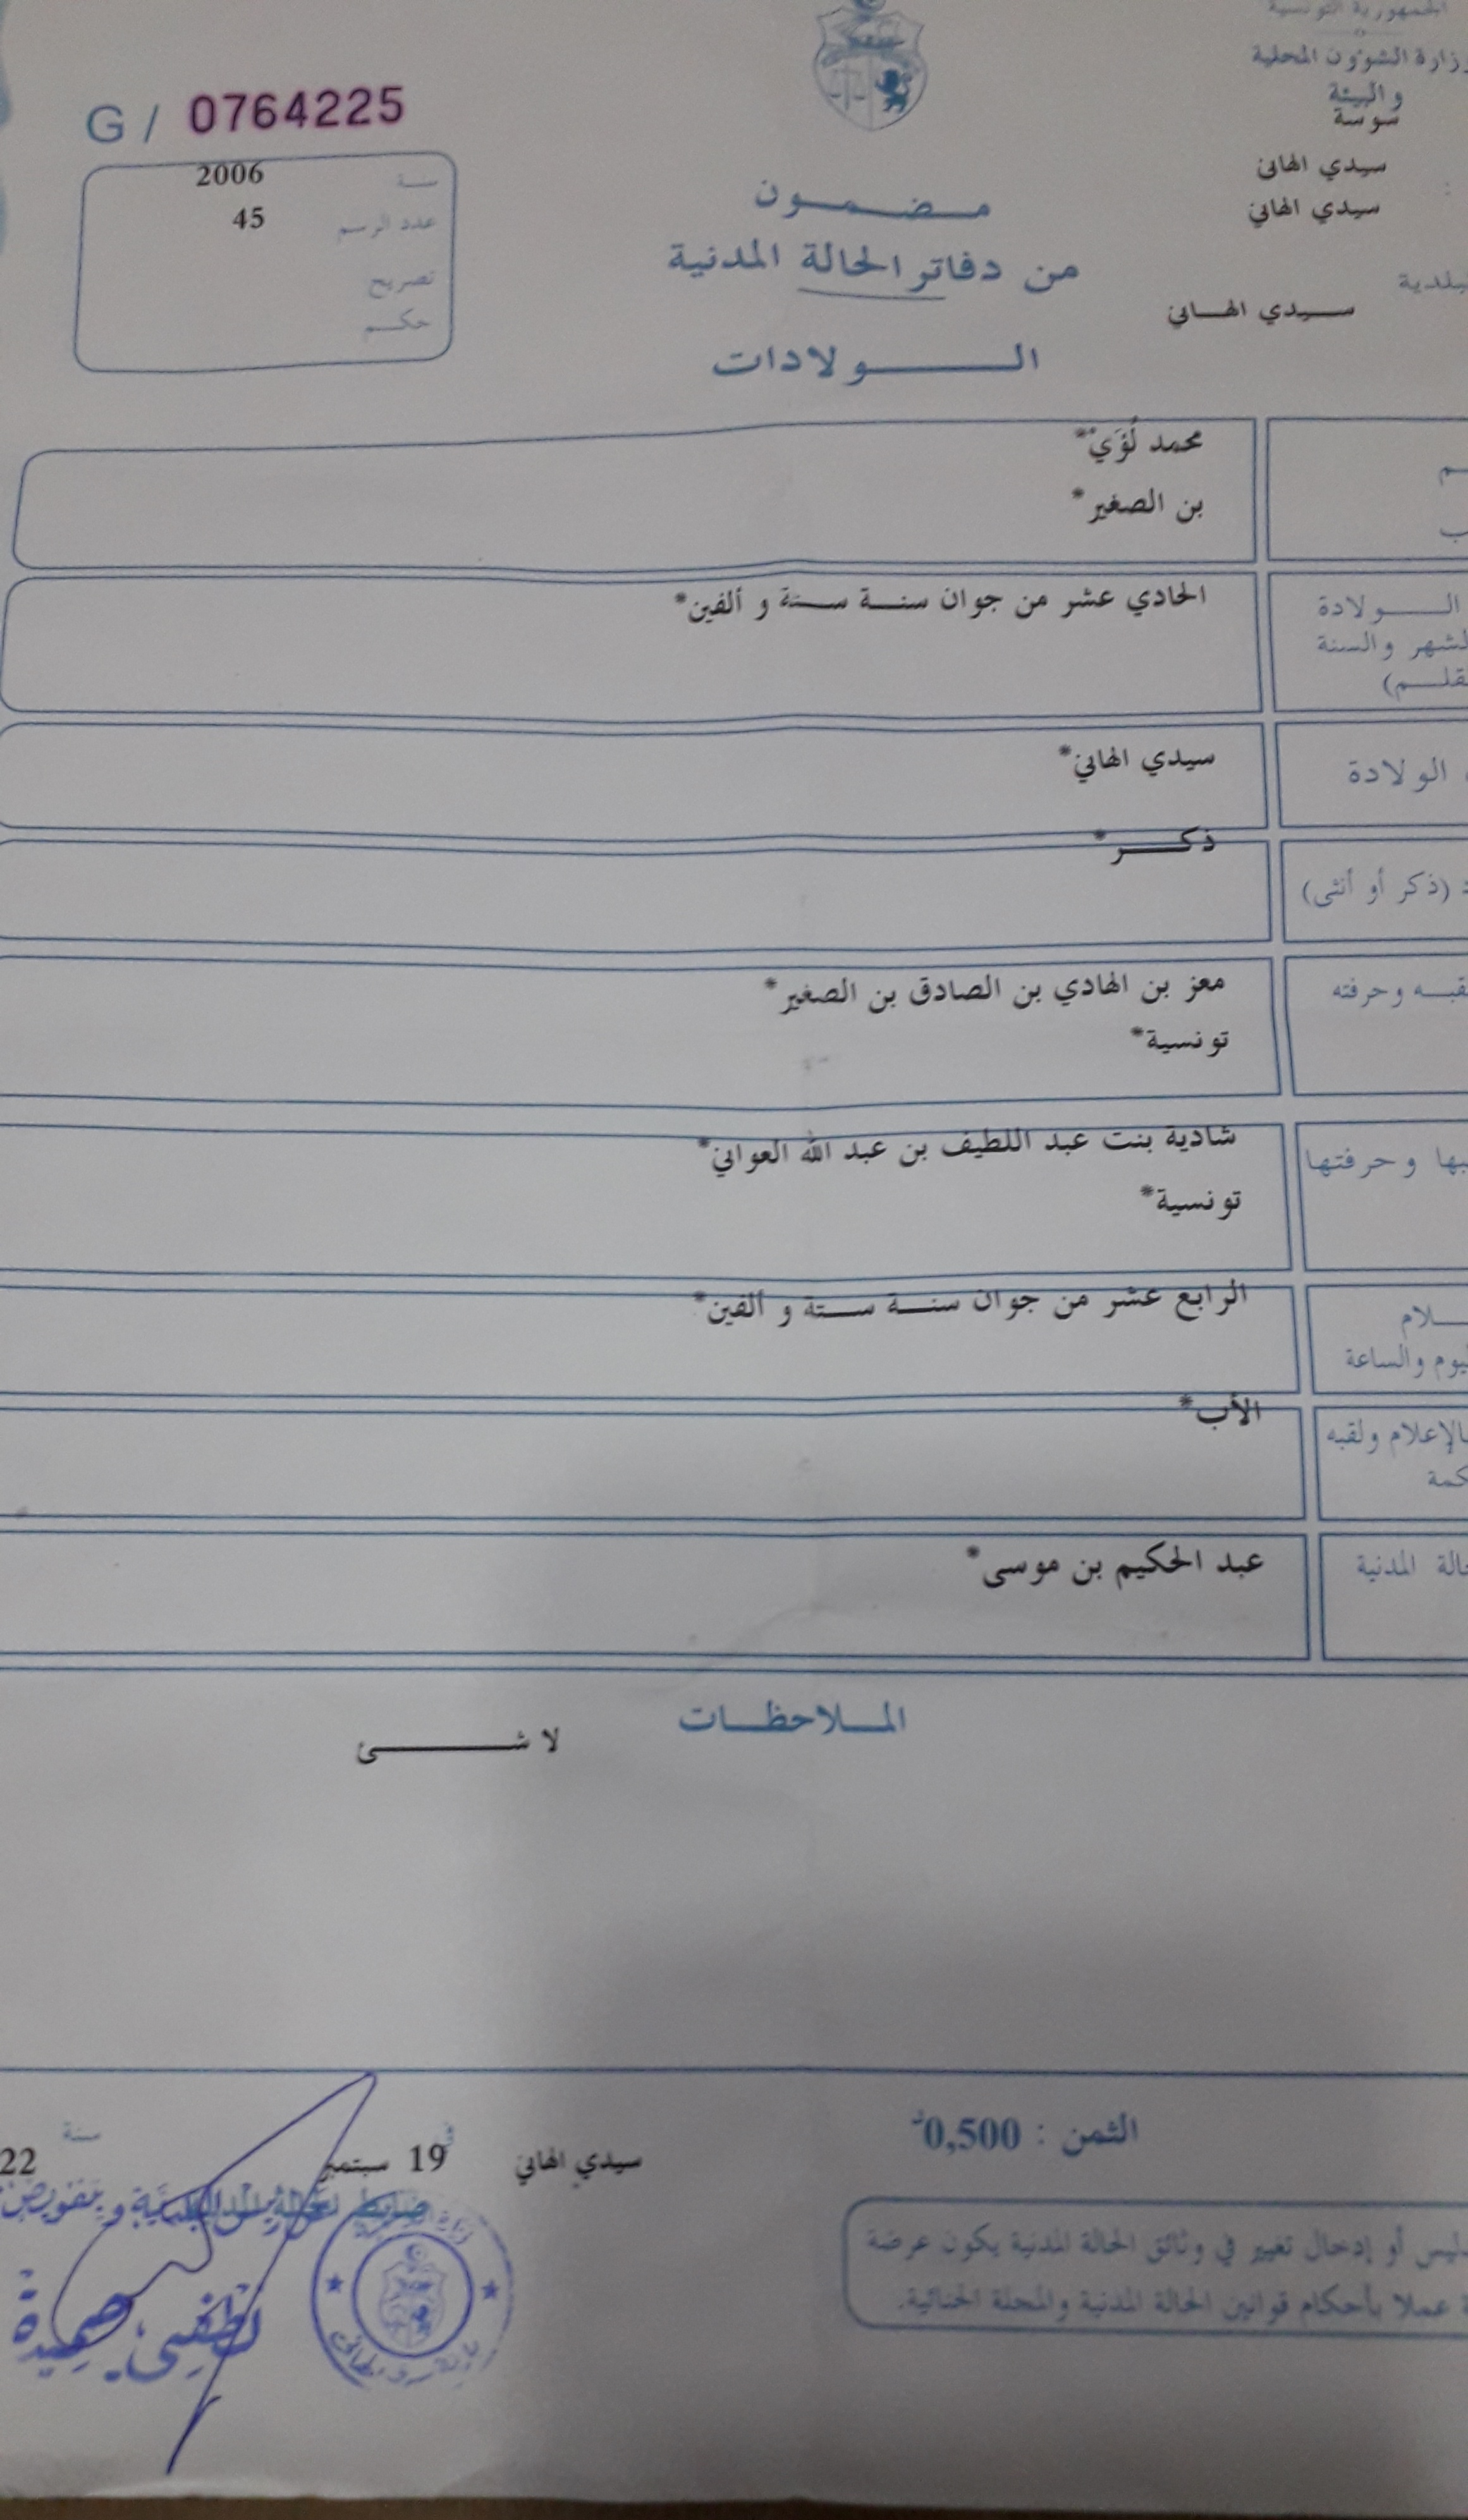 الجمهورية التونسية
وزارة الشؤون المحلية
والبيئة
سوسة
سيدي الهاني
سيدي الهاني
سيدي الهاني
G / 0764225
سنة 2006
عدد الرسم 45
تصريح
حكم
مضمون
من دفاتر الحالة المدنية
الولادات
محمد لُؤَيْ*
بن الصغير*
الولادة الحادي عشر من جوان سنة ستة و ألفين*
والسنة
الولادة سيدي الهاني*
(ذكر أو أنثى) ذكر*
وحرفته معز بن الهادي بن الصادق بن الصغير*
تونسية*
وحرفتها شادية بنت عبد اللطيف بن عبد الله العواني*
تونسية*
الرابع عشر من جوان سنة ستة و ألفين*
والساعة
ولقبه الأب*
المدنية عبد الحكيم بن موسى*
الملاحظات
لا شئ
الثمن : 0,500د
سيدي الهاني في 19 سبتمبر سنة 22
أو إدخال تغيير في وثائق الحالة المدنية يكون عرضة
عملا بأحكام قوانين الحالة المدنية والمجلة الجنائية.